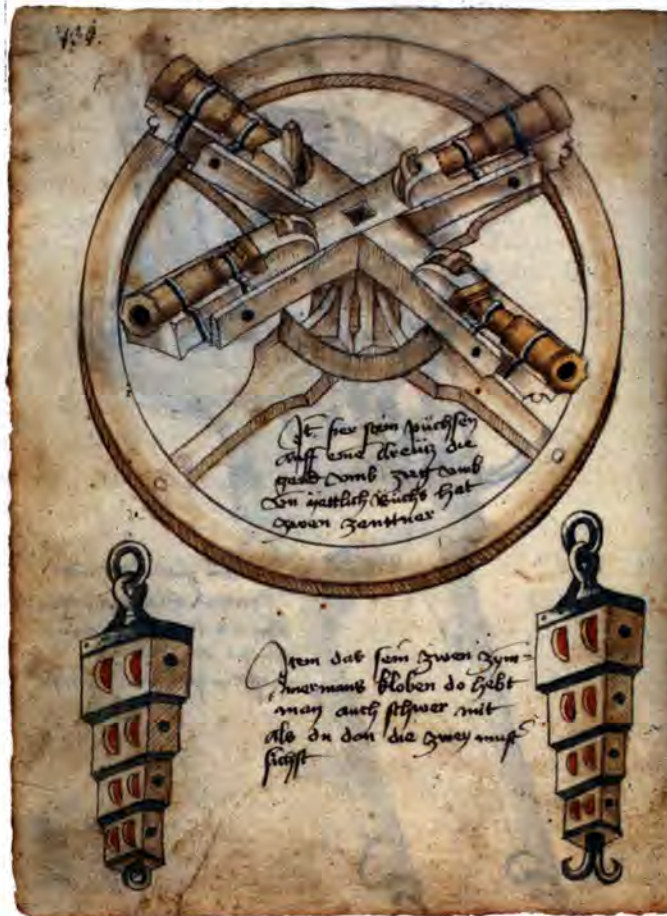 It fier stein püchsen
auff eine kreütz die
gend vmb vmb
vn yettlich püchs hat
zwen zenttner
Item das sein zwen zym=
mermans kloben do hebt
man auch schwer mit
als du dan die zwey
sichst